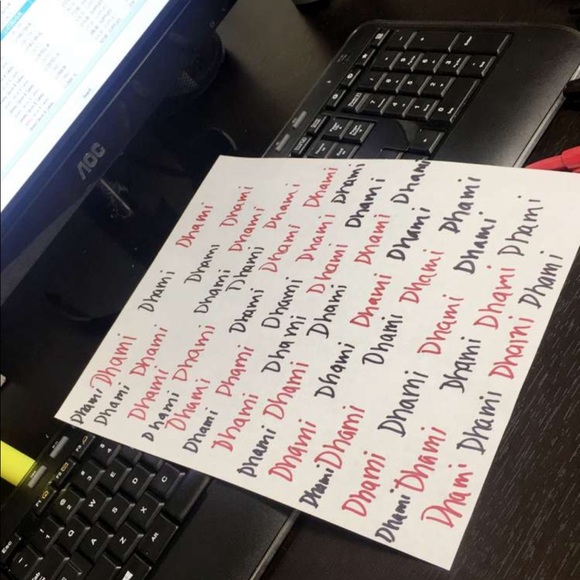 AOC
Dhami Dhami Dhami Dhami
Dhami Dhami Dhami Dhami
Dhami Dhami Dhami Dhami Dhami Dhami
Dhami Dhami Dhami Dhami Dhami
Dhami Dhami Dhami Dhami Dhami
Dhami Dhami Dhami Dhami
Dhami Dhami Dhami Dhami Dhami
Dhami Dhami Dhami Dhami Dhami
Dhami Dhami Dhami Dhami Dhami
Dhami Dhami Dhami Dhami
Dhami Dhami Dhami Dhami Dhami
Dhami Dhami Dhami